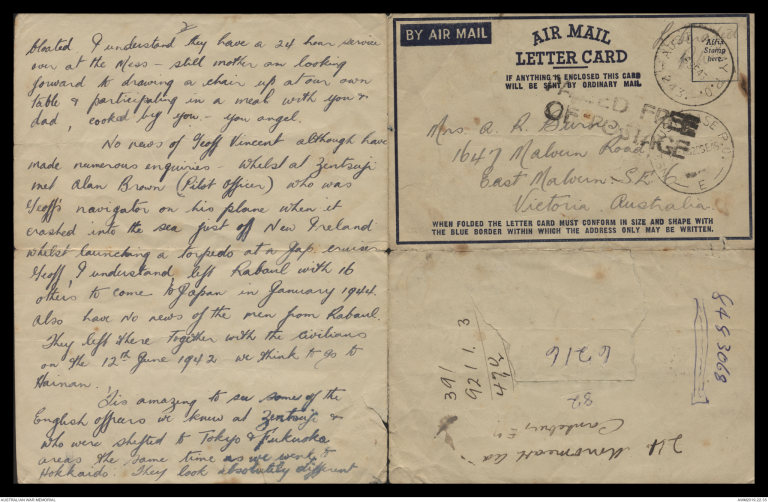 2
bloated. I understand they have a 24 hour service
over at the Mess – still mother am looking
forward to drawing a chair up at our own
table & participating in a meal with you &
dad, cooked by you – you angel.
No news of Geoff Vincent although have
made numerous enquiries – whilst at Zentsuji
met Alan Brown (Pilot Officer) who was
Geoff's navigator on his plane when it
crashed into the sea just off New Ireland
whilst launching a torpedo at a Jap. cruiser
Geoff, I understand, left Rabaul with 16
others to come to Japan in January 1944.
Also have no news of the men from Rabaul.
They left there together with the civilians
on the 12th June 1942 we think to go to
Hainan.
Tis amazing to see some of the
English officers we knew at Zentsuji &
who were shifted to Tokyo & Fukuoka
areas the same time as we went to
Hokkaido. They look absolutely different
BY AIR MAIL
AIR MAIL
LETTER CARD
IF ANYTHING IS ENCLOSED THIS CARD
WILL BE SENT BY ORDINARY MAIL
Affix
Stamp
here.
OF POSTAGE
Mrs. A. R.
1647 Malvern Road
East Malvern. S.E. 6
Victoria. Australia.
WHEN FOLDED THE LETTER CARD MUST CONFORM IN SIZE AND SHAPE WITH
THE BLUE BORDER WITHIN WHICH THE ADDRESS ONLY MAY BE WRITTEN.
391
921 1. 3
6216
32
24
AUSTRALIAN WAR MEMORIAL